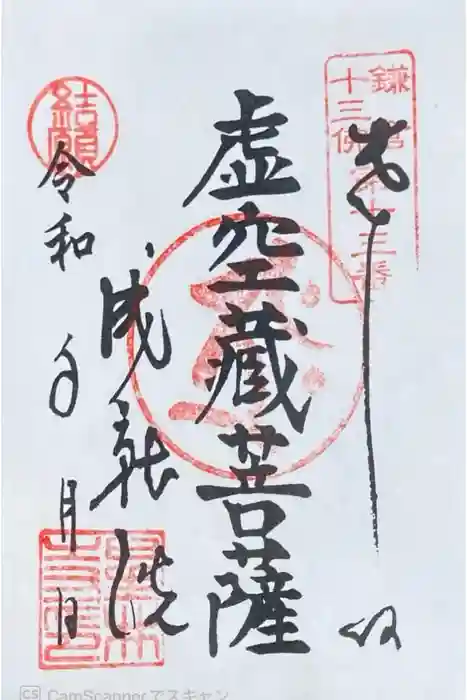 鎌倉
十三佛第十三番
奉拝
虚空藏菩薩
成就院
結願
令和 年 月 日
CS CamScannerでスキャン